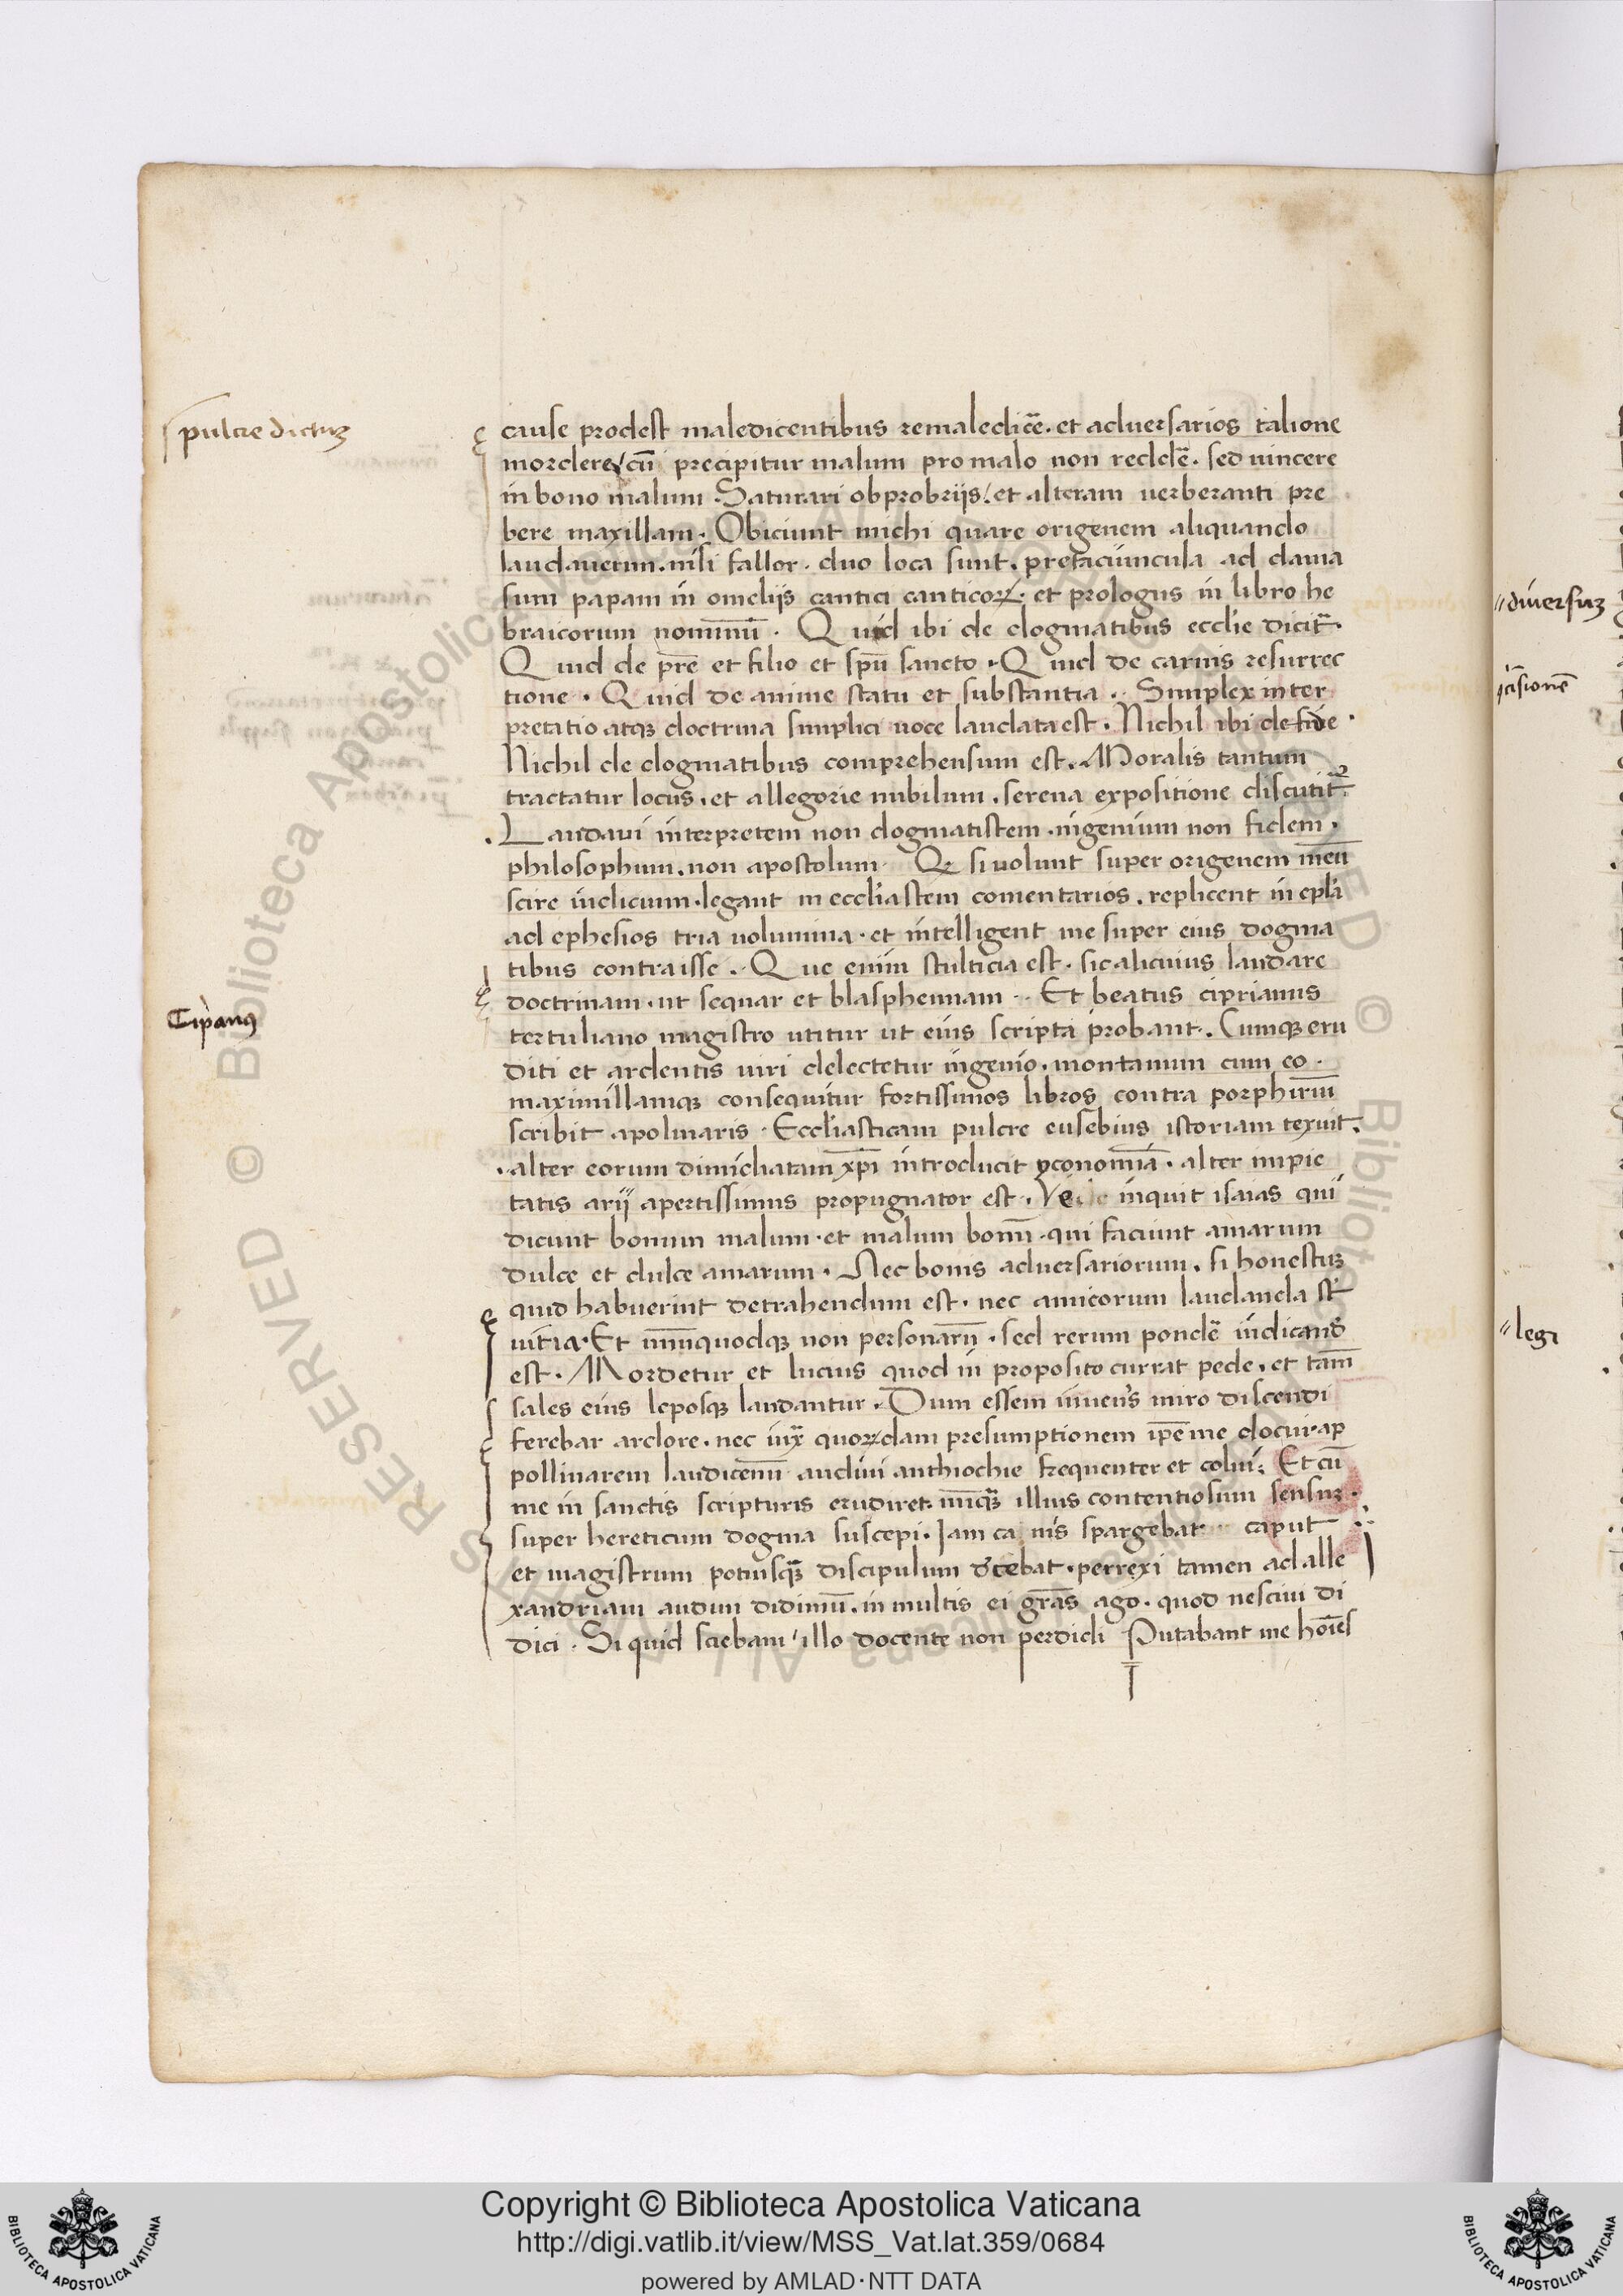 pulcre dictuz
cause prodest maledicentibus remaledicē. et adversarios talione
mordere/cū precipitur malum pro malo non reddē. sed vincere
in bono malum. Saturari obprobrijs/et alteram verberanti pre
bere maxillam. Obiciunt michi quare origenem aliquando
laudaverim. nisi fallor. duo loca sunt. prefaciuncula ad dama
sum papam in omelijs cantici canticoꝝ. et prologus in libro he
braicorum nominū. Quid ibi de dogmatibus ecclīe dicit̄.
Quid de prē et filio et spū sancto. Quid de carnis resurrec
tione. Quid de anime statu et substantia. Simplex inter
pretatio atqꝫ doctrina simplici voce laudata est. Nichil ibi de fide.
Nichil de dogmatibus comprehensum est. Moralis tantum
tractatur locus. et allegorie nubilum. serena expositione discutit̄
.Laudavi interpretem non dogmatistem. ingenium non fidem.
philosophum. non apostolum. Qꝫ si volunt super origenem meū
scire iudicium. legant in eccl̄iastem comentarios. replicent in epl̄a
ad ephesios tria volumina. et intelligent me super eius dogma
tibus contraisse. Que enim stulticia est. sic alicuius laudare
doctrinam. ut sequar et blasphemiam. Et beatus ciprianus
Cip̀anꝰ
tertuliano magistro utitur ut eius scripta probant. Cumqꝫ eru
diti et ardentis viri delectetur ingenio. montanum cum eo.
maximillamqꝫ consequitur fortissimos libros contra porphiriū
scribit apolinaris. Eccl̄iasticam pulcre eusebius istoriam texuit.
.alter eorum dimidiatam xp̄i introducit yconomiā. alter impie
tatis arij apertissimus propugnator est. Ve inquit isaias qui
dicunt bonum malum. et malum bonū. qui faciunt amarum
dulce et dulce amarum. Nec bonis adversariorum. si honestuꝫ
quid habuerint detrahendum est. nec amicorum laudanda st̄
vitia. Et unūquodqꝫ non personarū. sed rerum pondē iudicand̄
est. Mordetur et lucius quod in proposito currat pede. et tam̄
sales eius leposqꝫ laudantur. Dum essem iuvenis miro discendi
ferebar ardore. nec iuxᵃ quoꝝdam presumptionem ip̄e me docui. ap
pollinarem laudicenū audivi anthiochie frequenter et colui. Et cū
me in sanctis scripturis erudiret. nūqᵃ illius contentiosum sensuꝫ.
super hereticum dogma suscepi. Jam ca nis spargebat caput
et magistrum potiusqᵃ discipulum decebat. perrexi tamen ad alle
xandriam audivi didimū. in multis ei grās ago. quod nescivi di
dici. Si quid sciebam/illo docente non perdidi Putabant me hoīes
//diversuꝫ
//legi
Copyright © Biblioteca Apostolica Vaticana
http://digi.vatlib.it/view/MSS_Vat.lat.359/0684
powered by AMLAD·NTT DATA
BIBLIOTECA APOSTOLICA VATICANA
BIBLIOTECA APOSTOLICA VATICANA